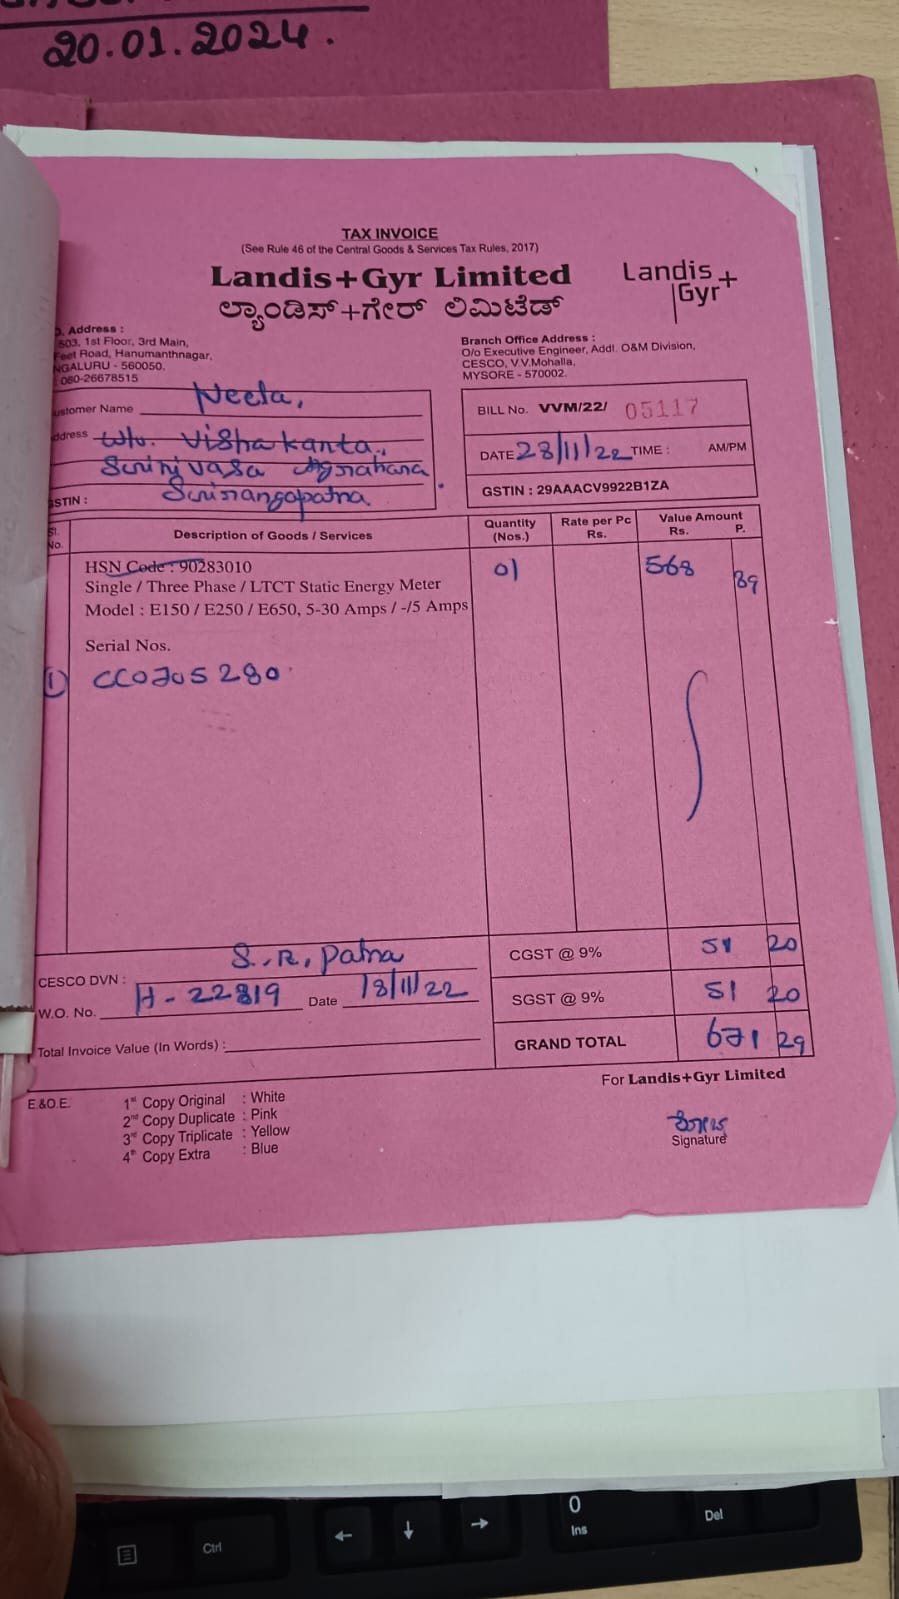 20.01.2024.
TAX INVOICE
(See Rule 46 of the Central Goods & Services Tax Rules, 2017)
Landis+Gyr Limited
ಲ್ಯಾಂಡಿಸ್+ಗೇರ್ ಲಿಮಿಟೆಡ್
Landis
Gyr+
Address :
503, 1st Floor, 3rd Main,
Road, Hanumanthnagar,
NGALURU - 560050.
080-26678515
Branch Office Address :
O/o Executive Engineer, Addl. O&M Division,
CESCO, V.V.Mohalla,
MYSORE - 570002.
ustomer Name Neeta,
ddress W/o. Vishakanta.,
Srinivasa Agrahara
Srirangapatna
STIN :
BILL No. VVM/22/ 05117
DATE 28/11/22 TIME : AM/PM
GSTIN : 29AAACV9922B1ZA
Sl. No. Description of Goods / Services Quantity (Nos.) Rate per Pc Rs. Value Amount Rs. P.
HSN Code : 90283010 01 568 89
Single / Three Phase / LTCT Static Energy Meter
Model : E150 / E250 / E650, 5-30 Amps / -/5 Amps
Serial Nos.
1) CC0705280
CESCO DVN : S.R, Patna
W.O. No. H-22819 Date 18/11/22
Total Invoice Value (In Words) :
CGST @ 9% 51 20
SGST @ 9% 51 20
GRAND TOTAL 671 29
For Landis+Gyr Limited
Signature
E.&O.E.
1st Copy Original : White
2nd Copy Duplicate : Pink
3rd Copy Triplicate : Yellow
4th Copy Extra : Blue
Ctrl
←
↓
→
0
Ins
Del